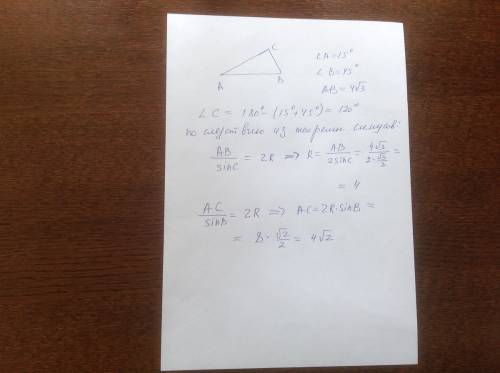 C
A B
∠A = 15°
∠B = 45°
AB = 4√3
∠C = 180° − (15° + 45°) = 120°
по следствию из теоремы синусов:
AB/sinC = 2R ⟹ R = AB/2sinC = 4√3/(2·√3/2) =
= 4
AC/sinB = 2R ⟹ AC = 2R·sinB =
= 8 · √2/2 = 4√2